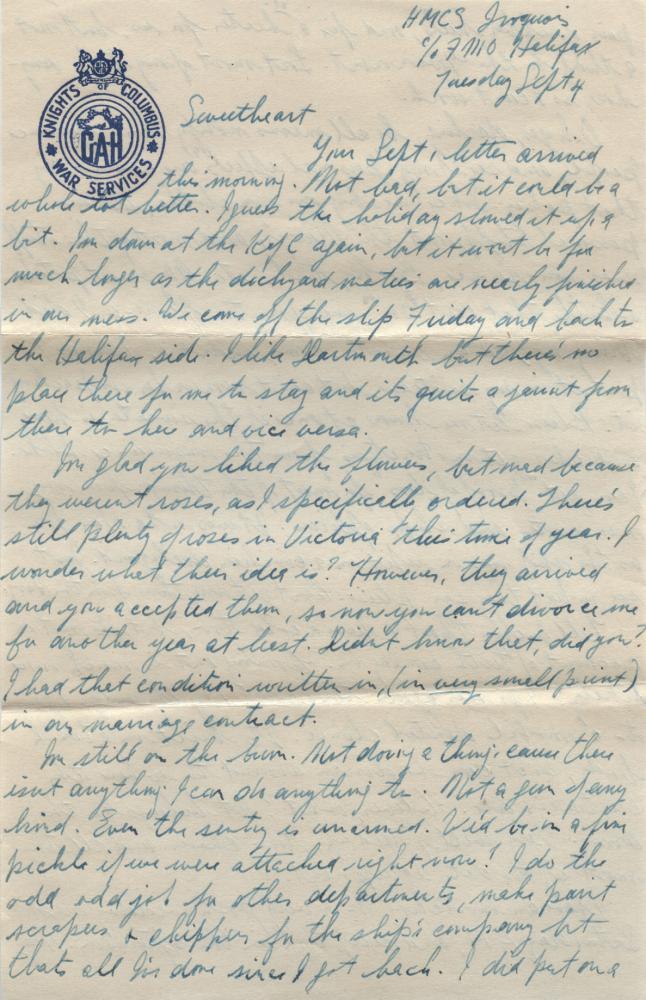 HMCS Iroquois
c/o FMO Halifax
Tuesday Sept 4
KNIGHTS OF COLUMBUS
CAH
WAR SERVICES
Sweetheart
Your Sept 1 letter arrived
this morning. Not bad, but it could be a
whole lot better. I guess the holiday slowed it up a
bit. Im down at the K of C again, but it wont be for
much longer as the dockyard maties are nearly finished
in our mess. We come off the slip Friday and back to
the Halifax side. I like Dartmouth but there's no
place there for me to stay and its quite a jaunt from
there to here and vice versa.
Im glad you liked the flowers, but mad because
they werent roses, as I specifically ordered. There's
still plenty of roses in Victoria this time of year. I
wonder what their idea is? However, they arrived
and you accepted them, so now you can't divorce me
for another year at least. Didn't know that, did you?
I had that condition written in, (in very small print)
in our marriage contract.
Im still on the bum. Not doing a thing cause there
isnt anything I can do anything to. Not a gun of any
kind. Even the sentry is unarmed. We'd be in a fine
pickle if we were attacked right now! I do the
odd odd job for other departments, make paint
scrapers & chippers for the ship's company but
thats all Iv'e done since I got back. I did put on a